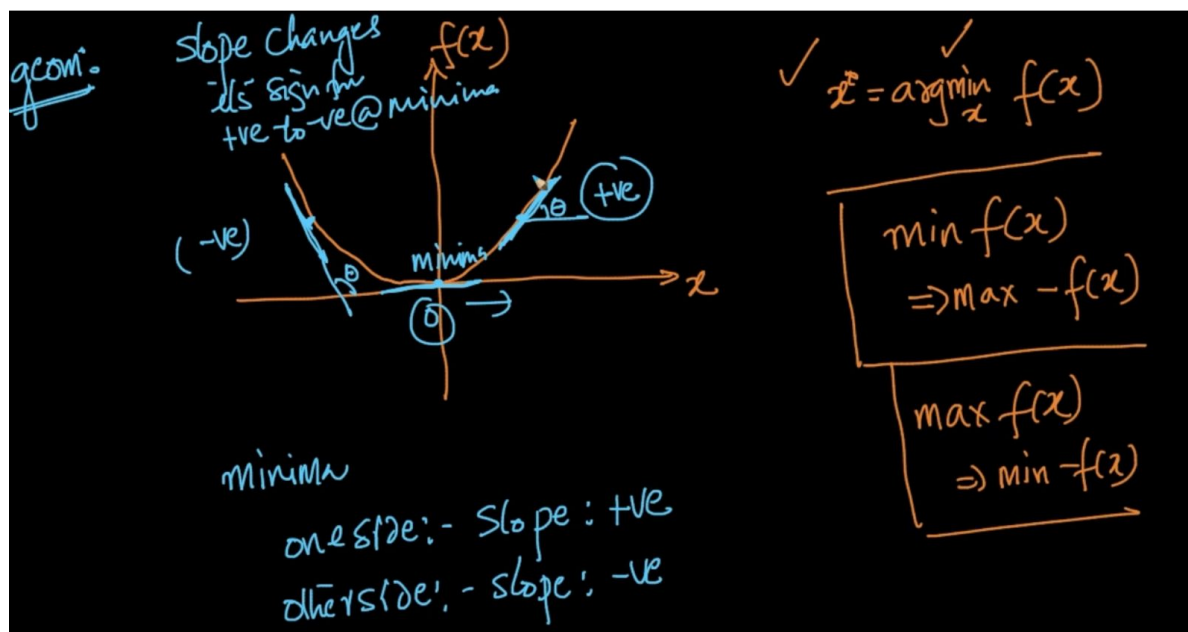 geom:
slope changes
its sign frm
+ve to -ve @ minima
f(x)
(-ve)
θ
minima
0
θ
+ve
x
minima
one side:- slope: +ve
other side:- slope: -ve
✓ ✓
x* = argmin f(x)
x
min f(x)
⇒ max - f(x)
max f(x)
⇒ min -f(x)